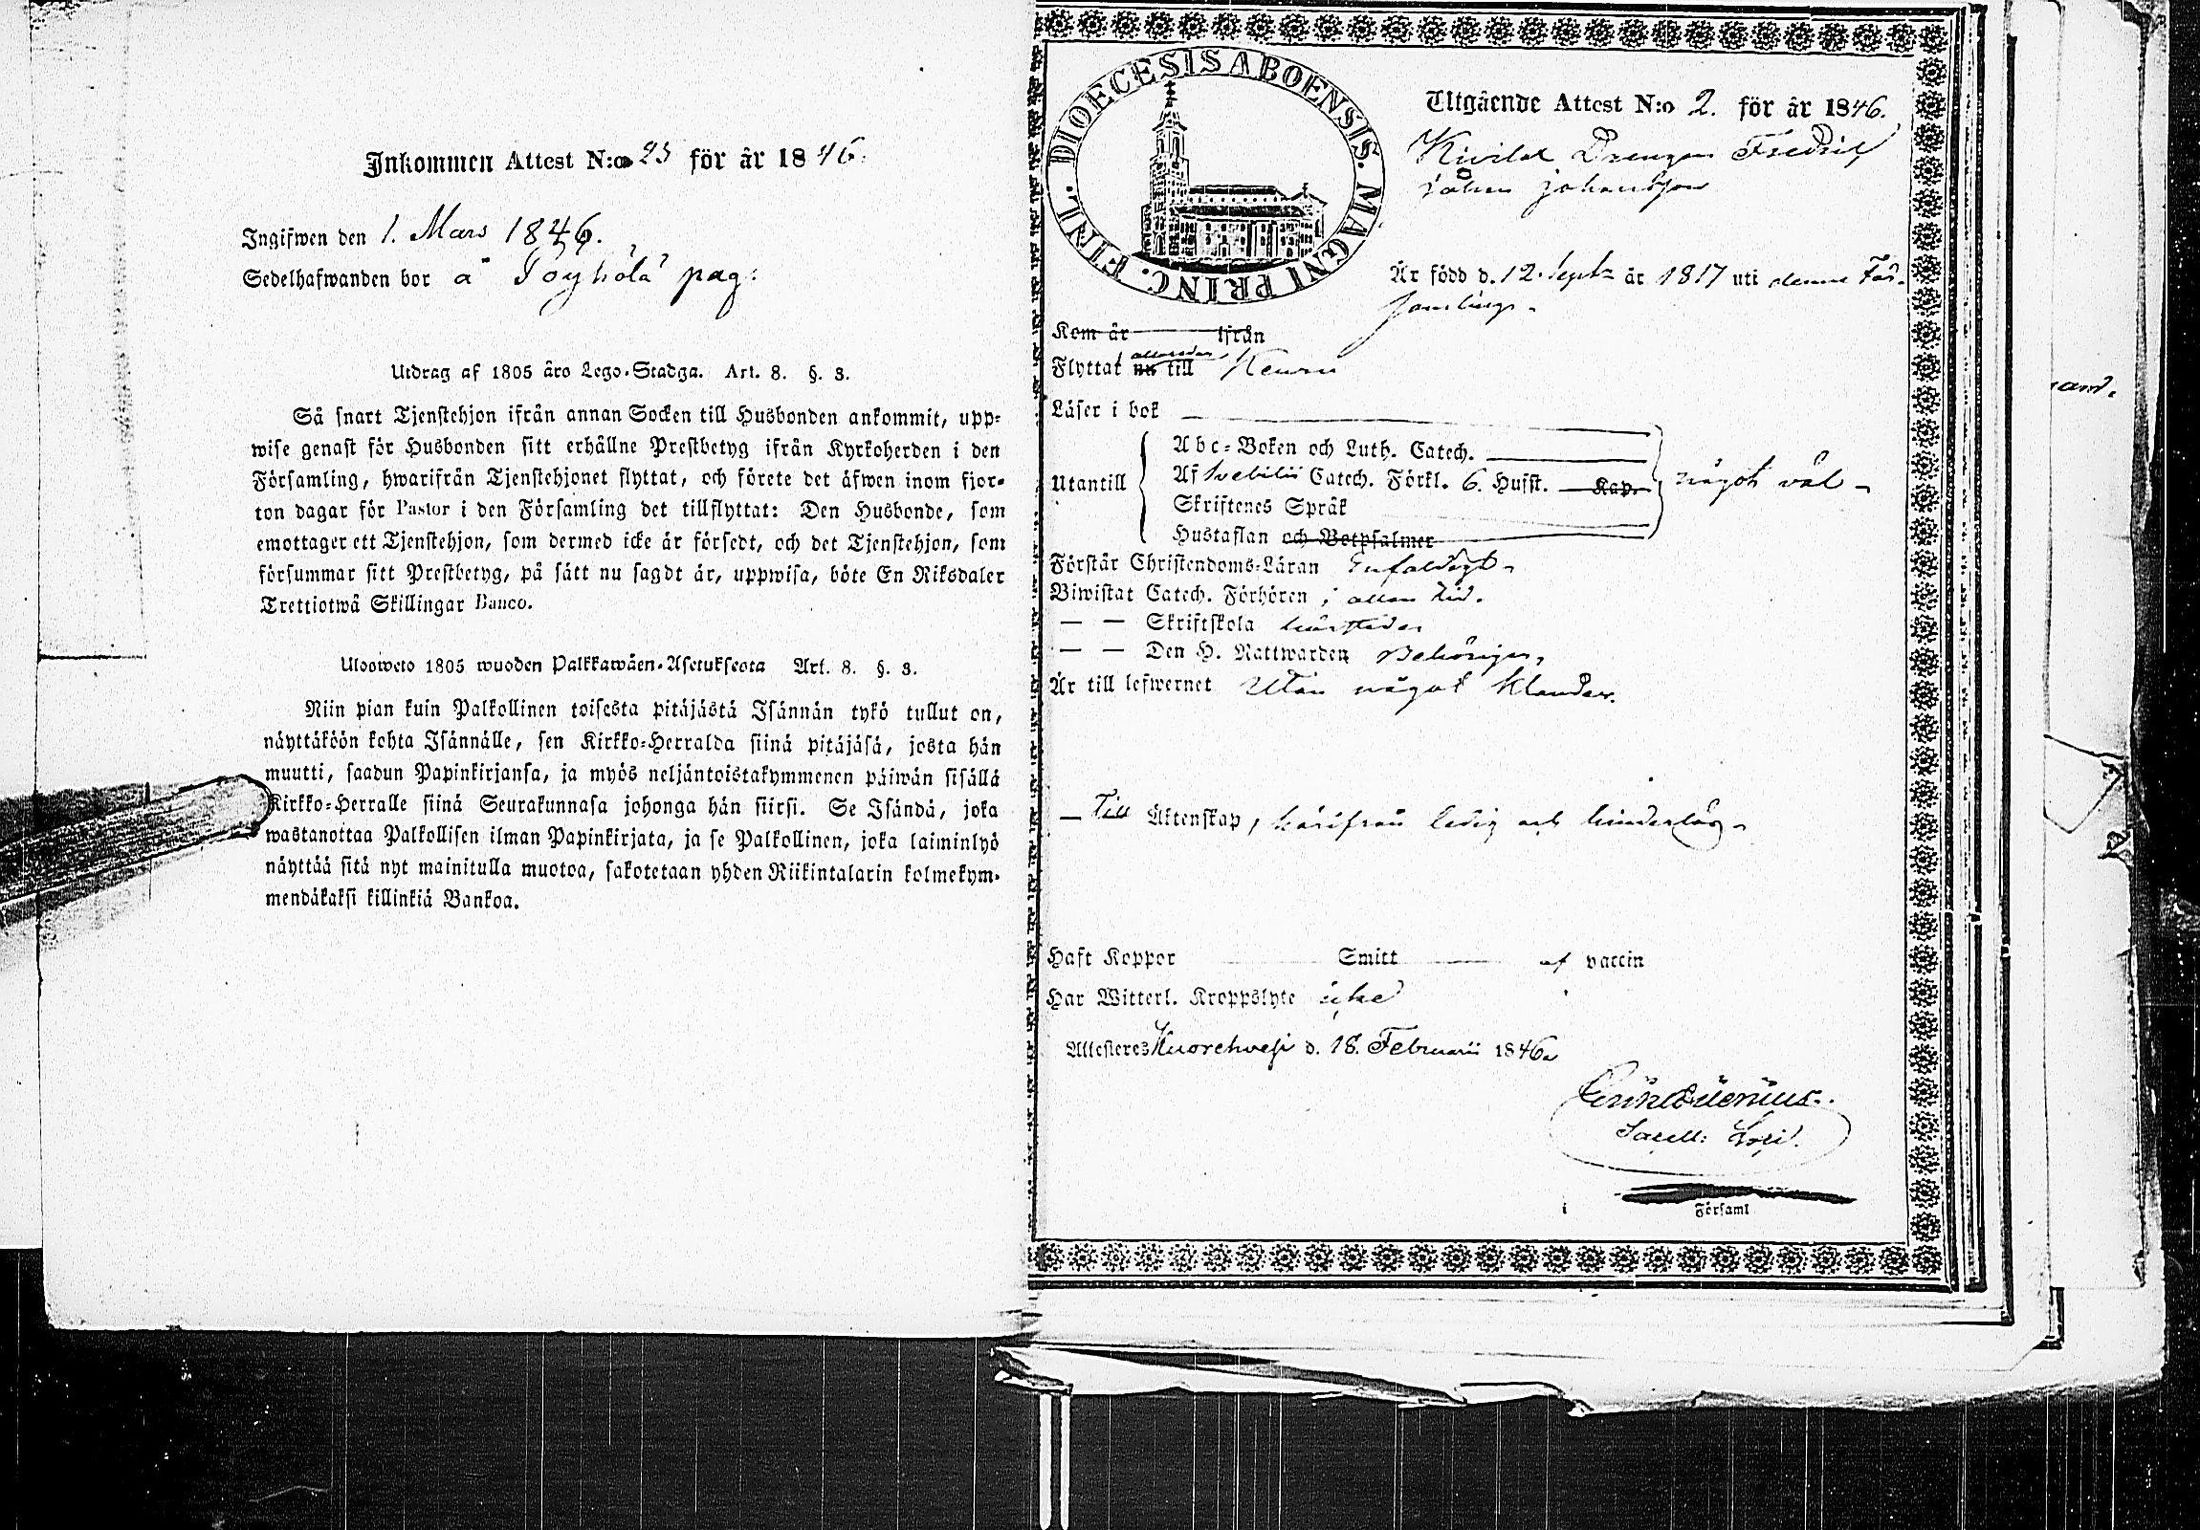 Inkommen Attest N:o 23 för år 1846.
Ingifwen den 1. Mars 1846.
Sedelhafwanden bor å pag:
Utdrag af 1805 års Lego-Stadga. Art. 8. §. 3.
Så snart Tjenstehjon ifrån annan Socken till Husbonden ankommit, upp-
wise genast för Husbonden sitt erhållne Prestbetyg ifrån Kyrkoherden i den
Församling, hwarifrån Tjenstehjonet flyttat, och förete det äfwen inom fjor-
ton dagar för Pastor i den Församling det tillflyttat: Den Husbonde, som
emottager ett Tjenstehjon, som dermed icke är försedt, och det Tjenstehjon, som
försummar sitt Prestbetyg, på sätt nu sagdt är, uppwisa, böte En Riksdaler
Trettiotwå Skillingar Banco.
Ulosweto 1805 wuoden Palkkawäen-Asetuksesta Art. 8. §. 3.
Niin pian kuin Palkollinen toisesta pitäjästä Isännän tykö tullut on,
näyttäköön kohta Isännälle, sen Kirkko-Herralda siinä pitäjäsä, josta hän
muutti, saadun Papinkirjansa, ja myös neljäntoistakymmenen päiwän sisällä
Kirkko-Herralle siinä Seurakunnasa johonga hän siirsi. Se Isändä, joka
wastanottaa Palkollisen ilman Papinkirjata, ja se Palkollinen, joka laiminlyö
näyttää sitä nyt mainitulla muotoa, sakotetaan yhden Riikintalarin kolmekym-
mendäkaksi killinkiä Bankoa.
DIOECESIS ABOENSIS. MAGNI PRINC. FINL.
Utgående Attest N:o 2. för år 1846.
Drengen Fredrik
Johan Johansson
Är född d. 12. Sept. år 1817 uti denna För-
samling.
Kom år ifrån
Flyttat nu till Keuru
allaredan
Läser i bok
Utantill
Abc-Boken och Luth. Catech.
Af Svebilii Catech. Förkl. 6. Hufst. Kap.
Skriftenes Språk
Hustaflan och Botpsalmer
något väl
Förstår Christendoms-Läran Enfaldigt
Biwistat Catech. Förhören i allan tid.
— — Skriftskola härstädes
— — Den H. Nattwarden Behörigen,
Är till lefwernet Utan något klander.
— Till Äktenskap, härifrån ledig och hinderlös
Haft Koppor Smitt af vaccin
Har Witterl. Kroppslyte icke
Attesteres Kuorehvesi d. 18. Februarii 1846.
Sacell:
Församl